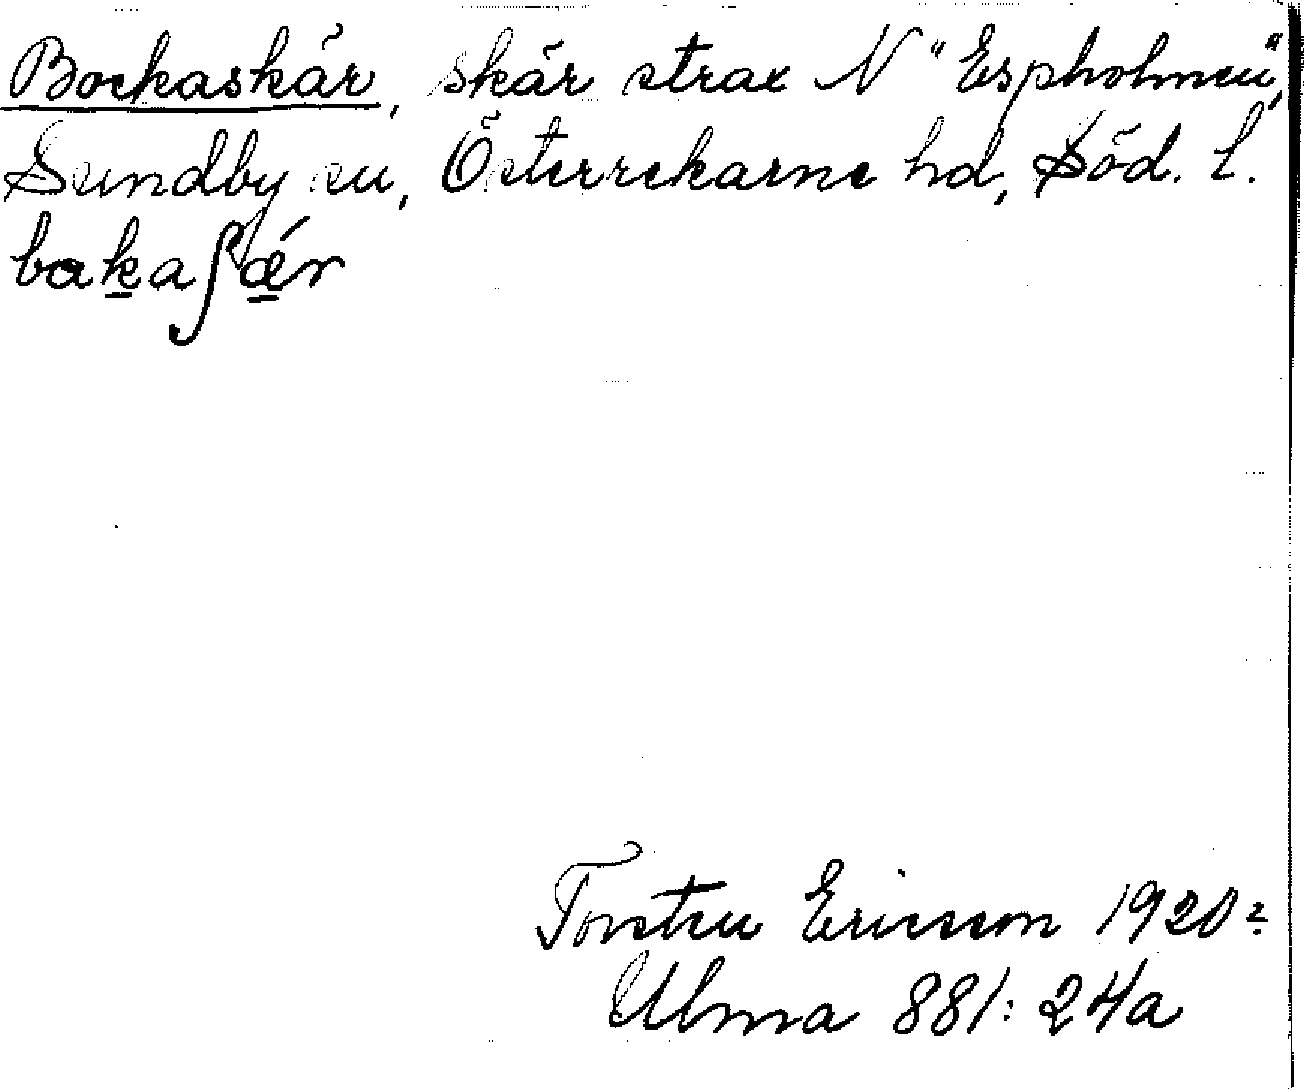 Bockaskär, skär strax N "Espholmen",
Sundby sn, Österrekarne hd, Söd. l.
bak̲aʃǽ̲r
Torsten Ericsson 1920=
Ulma 881: 24a